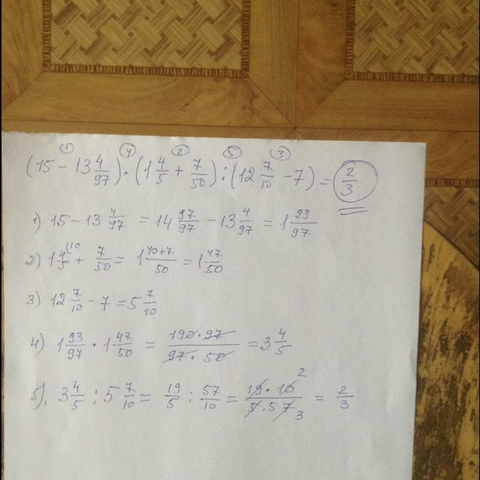 ① ④ ② ⑤ ③
(15 − 13 4/97) · (1 4/5 + 7/50) : (12 7/10 − 7) = 2/3
1) 15 − 13 4/97 = 14 97/97 − 13 4/97 = 1 93/97
2) 1 4/5 (10 + 7/50 = 1 40+7/50 = 1 47/50
3) 12 7/10 − 7 = 5 7/10
4) 1 93/97 · 1 47/50 = 190 · 97/97 · 50 = 3 4/5
5) 3 4/5 : 5 7/10 = 19/5 : 57/10 = 19 · 10 2/5 · 57 3 = 2/3